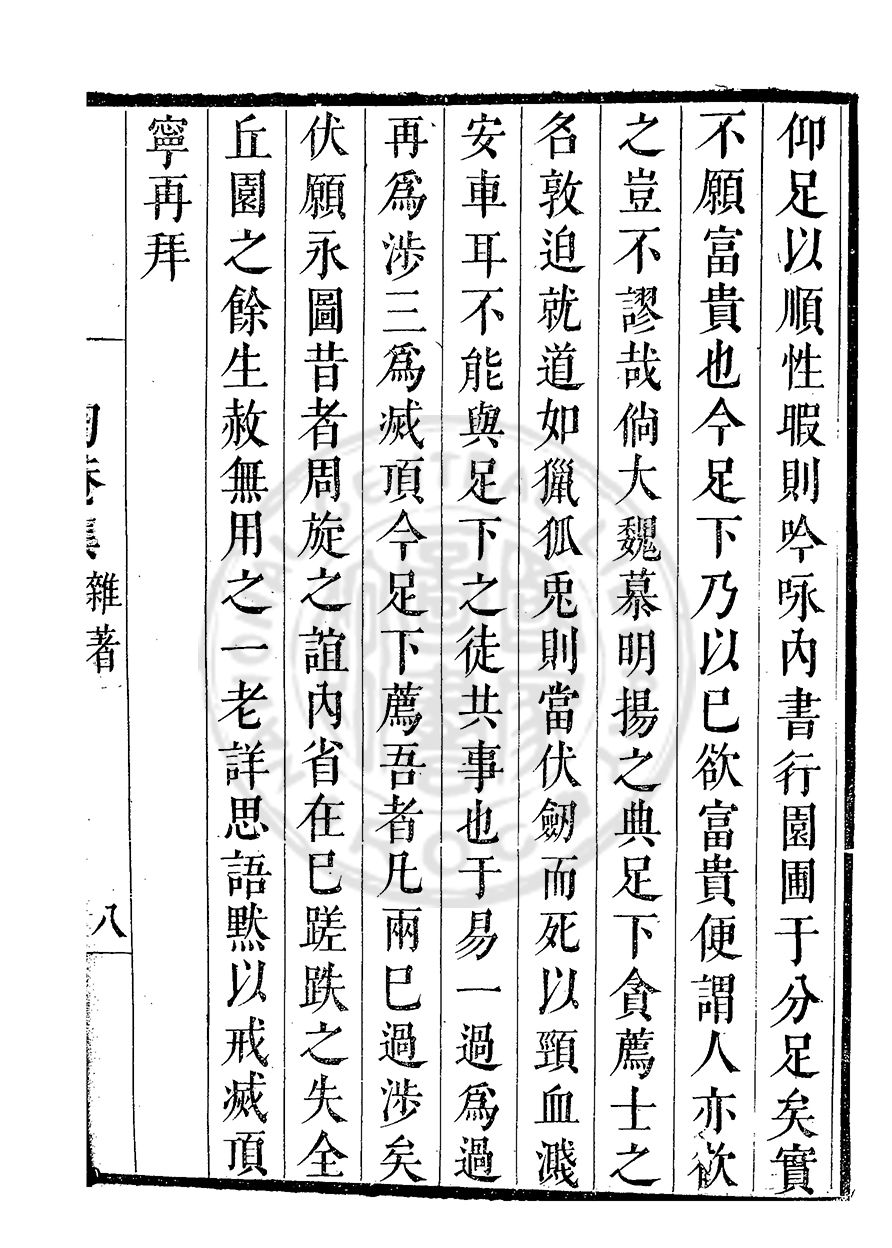 仰足以順性暇則吟咏內書行園圃于分足矣實
不願富貴也今足下乃以已欲富貴便謂人亦欲
之豈不謬哉倘大魏慕明揚之典足下貪薦士之
名敦迫就道如獵狐兎則當伏劒而死以頸血濺
安車耳不能與足下之徒共事也于易一過爲過
再爲涉三爲滅頂今足下薦吾者凡兩已過涉矣
伏願永圖昔者周旋之誼內省在已蹉跌之失全
丘園之餘生赦無用之一老詳思語默以戒滅頂
寧再拜
菴集 雜著 八